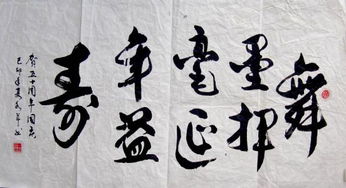 舞
墨揮
毫延
年益
寿
賀五十周年国庆
己卯年夏